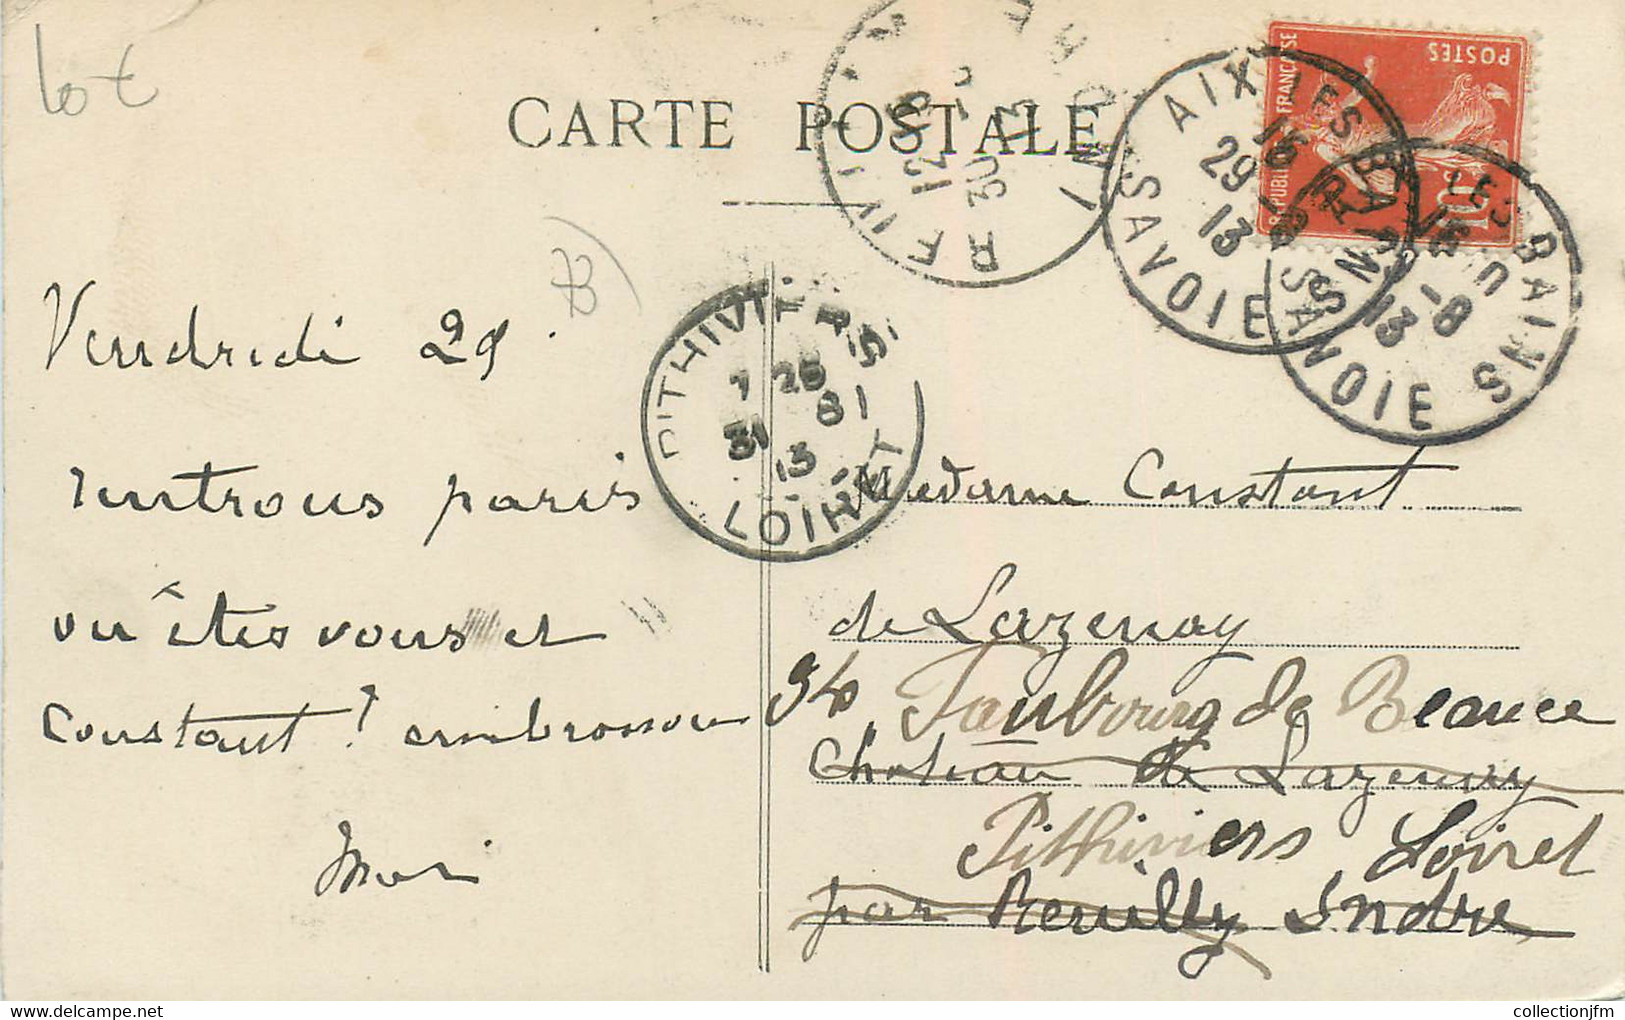 lot
CARTE POSTALE
REPUBLIQUE FRANÇAISE
POSTES
10
AIX-LES-BAINS
16
29 -8
13
SAVOIE
AIX-LES-BAINS
16
-8
13
SAVOIE
REUILLY
12 05
30 -8
13
INDRE
PITHIVIERS
7 25
31 8
13
LOIRET
Vendredi 29.
rentrons paris
ou êtes vous et
Constant? embrassons
Madame Constant
de Lazenay
34 Faubourg de Beauce
Chateau de Lazenay
Pithiviers Loiret
par Reuilly Indre
collectionjfm